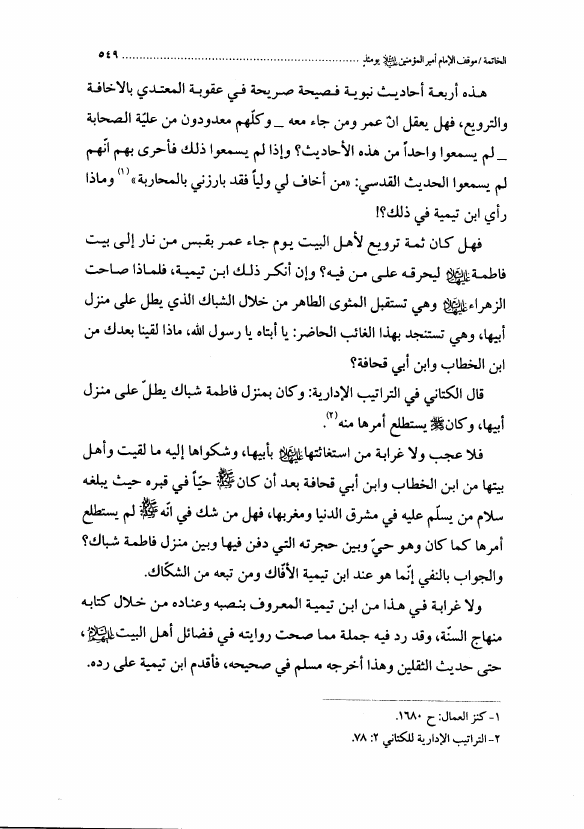 الخاتمة / موقف الإمام أمير المؤمنين عليه السلام يومئذٍ ............................................................ ٥٤٩
هـذه أربعـة أحاديـث نبويـة فـصيحة صريحة فـي عقوبـة المعتـدي بالاخافـة
والترويع، فهل يعقل انّ عمر ومن جاء معه _ وكلّهم معدودون من عليّة الصحابة
_ لم يسمعوا واحداً من هذه الأحاديث؟ وإذا لم يسمعوا ذلك فأحرى بهم انّهم
لم يسمعوا الحديث القدسي: «من أخاف لي ولياً فقد بارزني بالمحاربة» (١) وماذا
رأي ابن تيمية في ذلك؟!
فهـل كـان ثمـة ترويـع لأهـل البيـت يـوم جاء عمـر بقبـس مـن نـار إلـى بيـت
فاطمـة عليها السلام ليحرقـه علـى مـن فيـه؟ وإن أنكـر ذلـك ابـن تيميـة، فلمـاذا صـاحت
الزهراء عليها السلام وهي تستقبل المثوى الطاهر من خلال الشباك الذي يطل على منزل
أبيها، وهي تستنجد بهذا الغائب الحاضر: يا أبتاه يا رسول الله، ماذا لقينا بعدك من
ابن الخطاب وابن أبي قحافة؟
قال الكتاني في التراتيب الإدارية: وكان بمنزل فاطمة شباك يطلّ على منزل
أبيها، وكان ﷺ يستطلع أمرها منه (٢).
فلا عجب ولا غرابة من استغاثتها عليها السلام بأبيها، وشكواها إليه ما لقيت وأهل
بيتها من ابن الخطاب وابن أبي قحافة بعد أن كان ﷺ حيّاً في قبره حيث يبلغه
سلام من يسلّم عليه في مشرق الدنيا ومغربها، فهل من شك في انّه ﷺ لم يستطلع
أمرها كما كان وهو حيّ وبين حجرته التي دفن فيها وبين منزل فاطمة شباك؟
والجواب بالنفي إنّما هو عند ابن تيمية الأفّاك ومن تبعه من الشكّاك.
ولا غرابـة فـي هـذا مـن ابـن تيميـة المعروف بنصبه وعناده مـن خـلال كتابـه
منهاج السنّة، وقد رد فيه جملة مما صحت روايته في فضائل أهل البيت عليهم السلام،
حتى حديث الثقلين وهذا أخرجه مسلم في صحيحه، فأقدم ابن تيمية على رده.
١- كنز العمال: ح ١٦٨٠.
٢- التراتيب الإدارية للكتاني ٢: ٧٨.